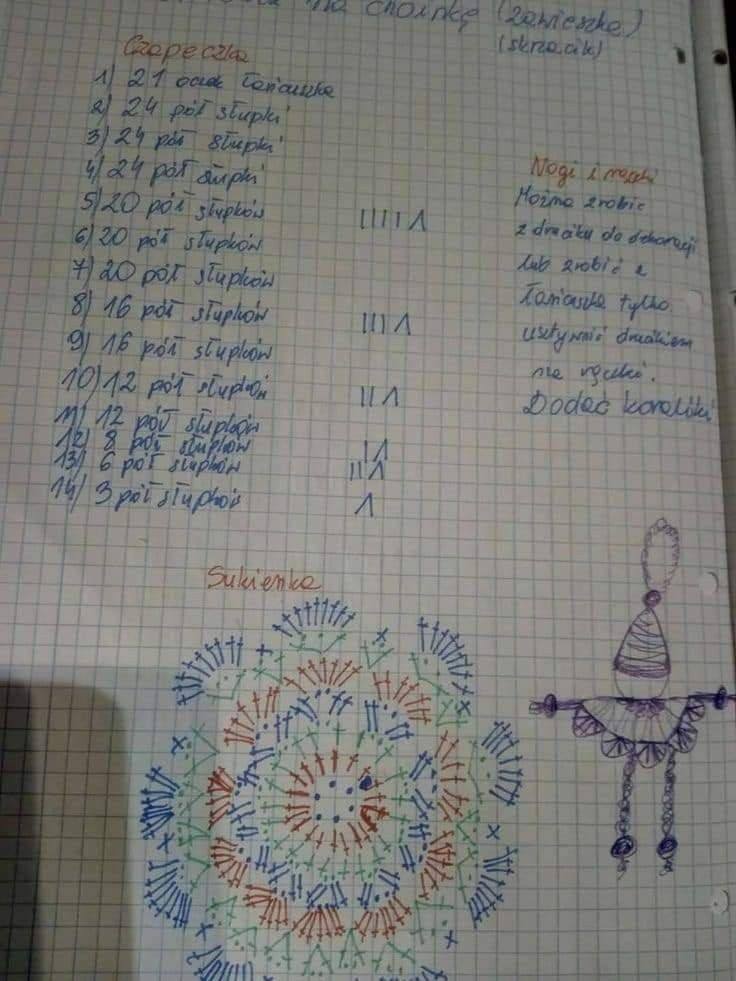 na choinkę (zawieszka)
(skrzacik)
Czapeczka
1) 21 oczek łańcuszka
2) 24 pół słupki
3) 24 pół słupki
4) 24 pół słupki
5) 20 pół słupków
6) 20 pół słupków
7) 20 pół słupków
8) 16 pół słupków
9) 16 pół słupków
10) 12 pół słupków
11) 12 pół słupków
12) 8 pół słupków
13) 6 pół słupków
14) 3 pół słupków
Nogi i rączki
Można zrobić
z drucika do dekoracji
lub zrobić z
łańcuszka tylko
usztywnić drucikiem
na rączki.
Dodać koraliki
Sukienka